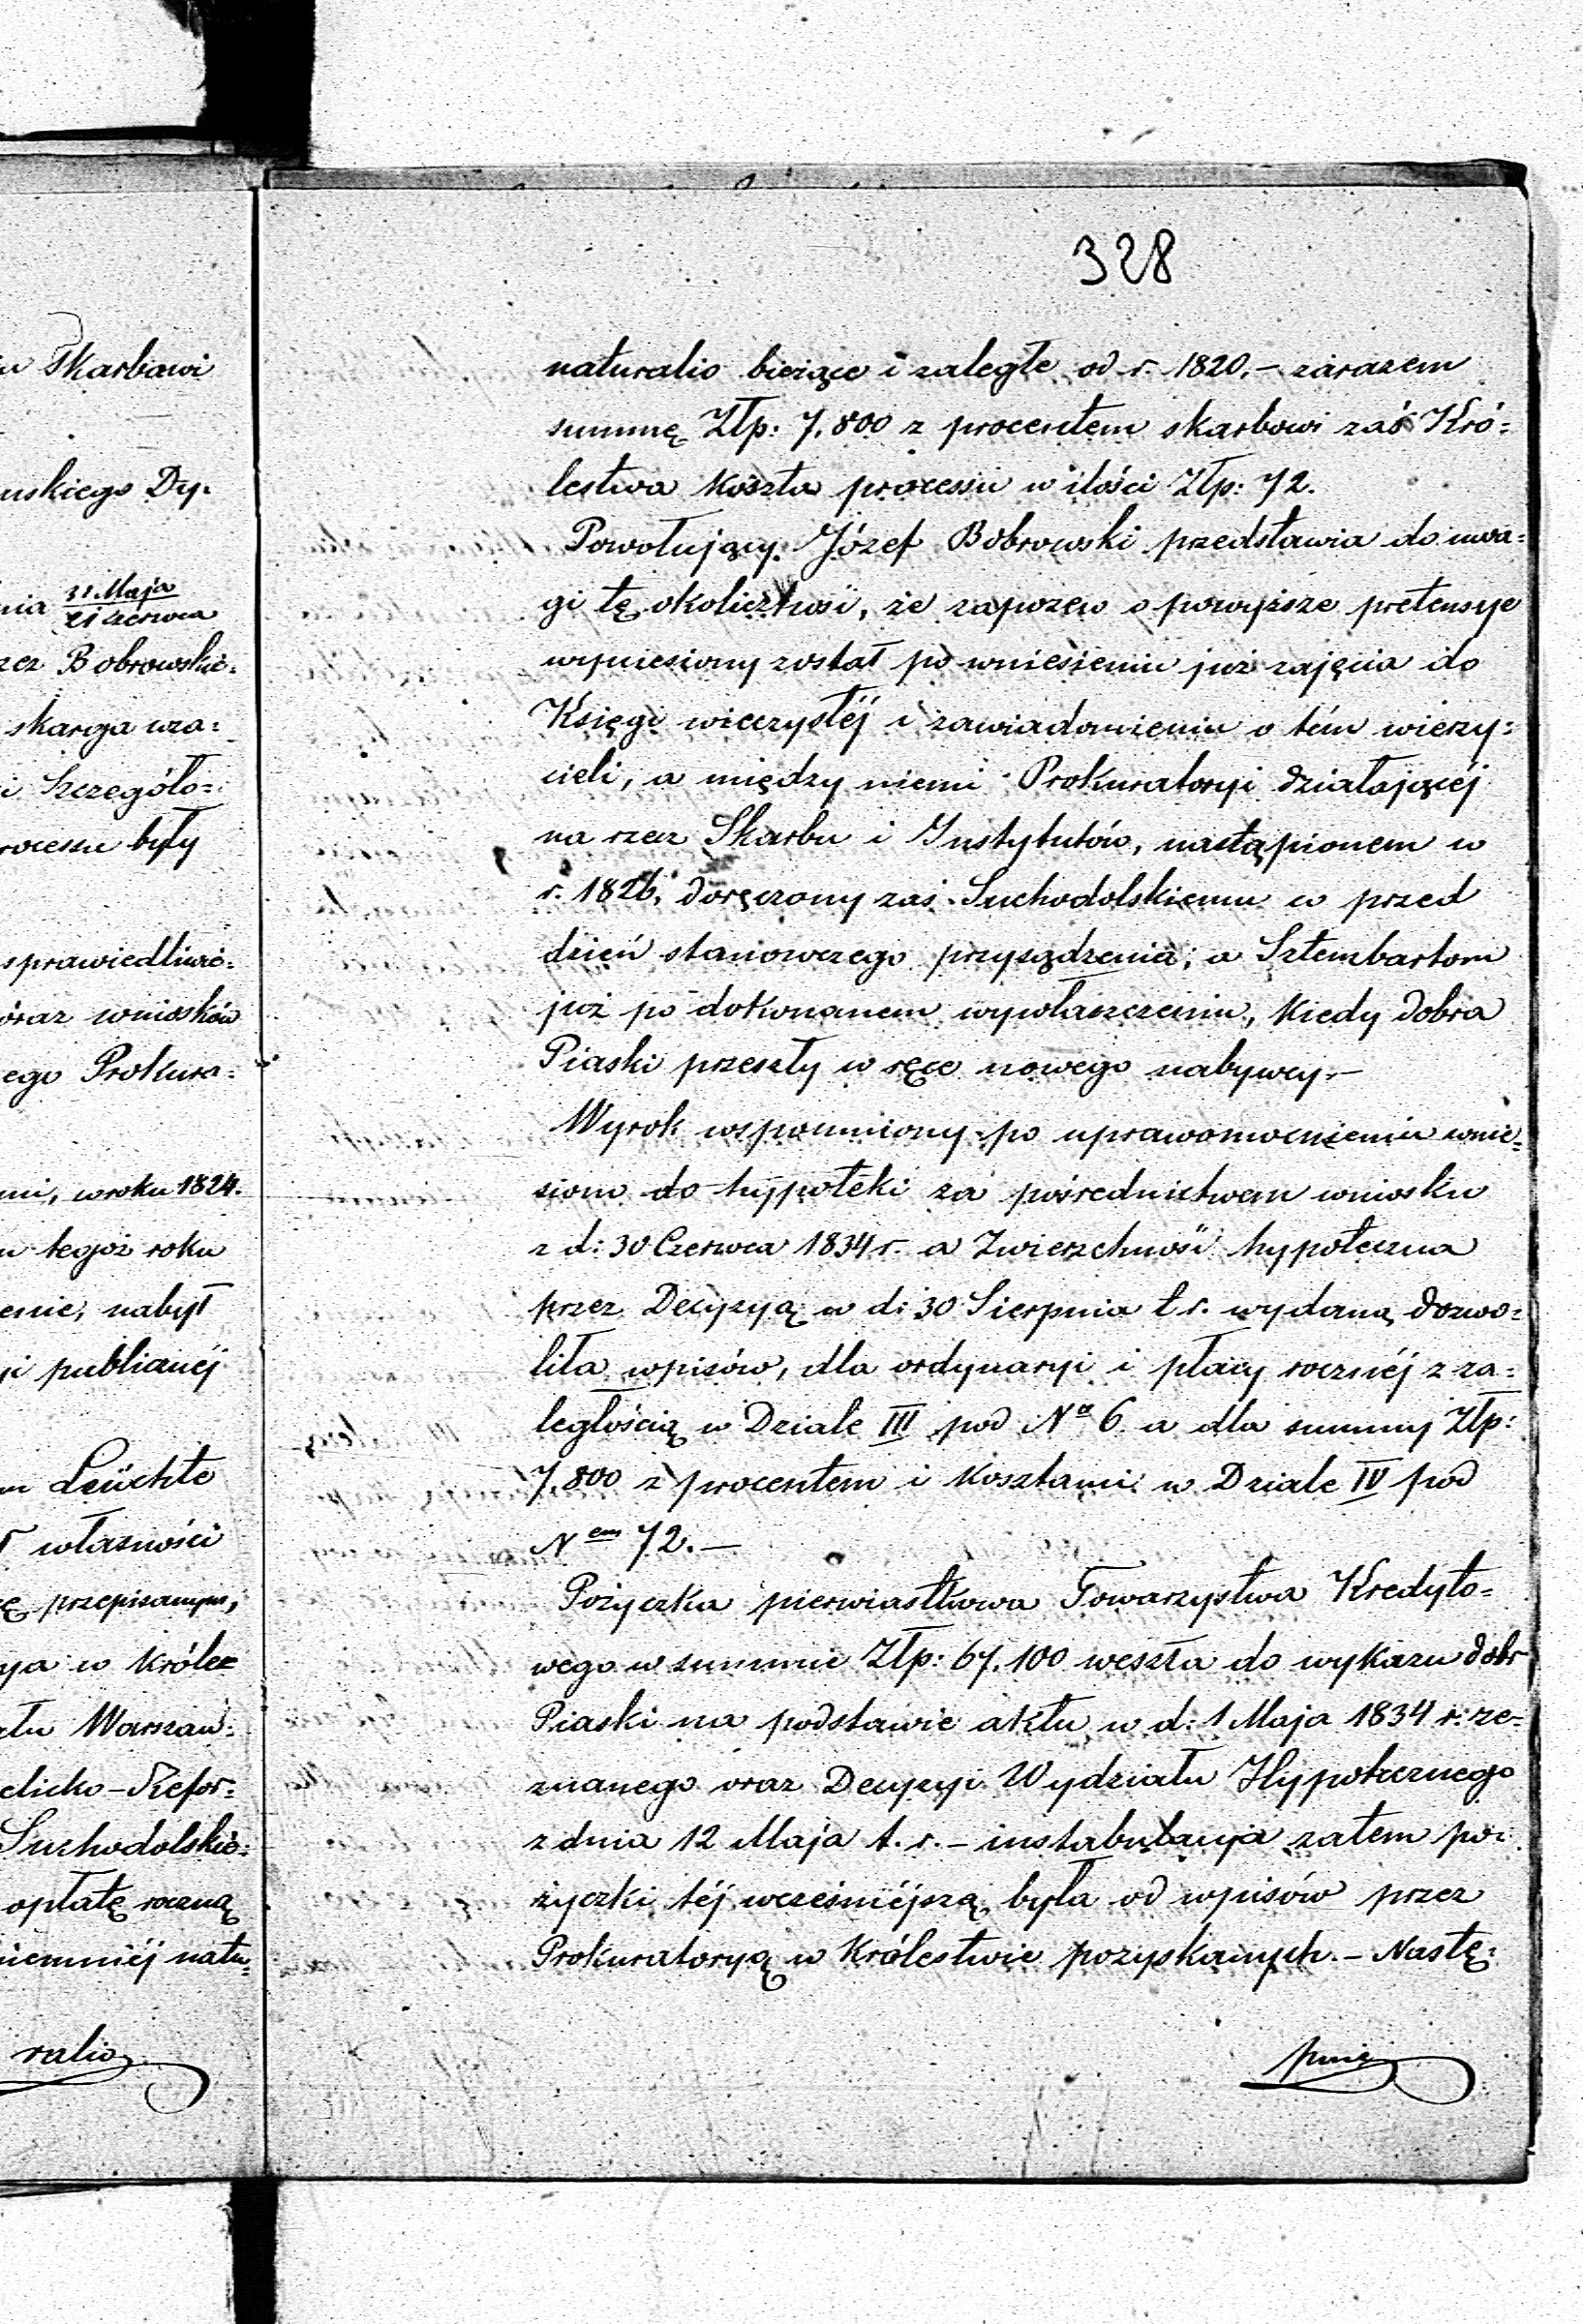 u Skarbawi
uskiego Dy:
nia 31 Maja
21 Czerwca
zez Bobrowskie:
skarga wza:
i Szczegóło:
rocessu były
sprawiedliwo:
oraz wniosków
ego Prokura:
mi, w roku 1824.
u tegoż roku
enie, nabył
yi publicznéj
m Leüchte
ł własności
ę przepisanym,
ya w Króle=
ału Warszaw:
elicko-Refor:
Suchodolskie:
opłatę roczną
niemniéj natu:
ralio
328
naturalio bieżące i zaległe od r. 1820. – zarazem
summę Złp: 7.800 z procentem skarbowi zaś Kró:
lestwa koszta processu w ilości Złp: 72.
Powołujący Józef Bobrowski przedstawia do uwa:
gi tę okoliczność, że zapozew o powyższe pretensye
wyniesiony został po wniesieniu już zajęcia do
Księgi wieczystéj i zawiadomieniu o tém wierzy:
cieli, a między niemi Prokuratoryi działającéj
na rzecz Skarbu i Instytutów, nastąpionem w
r. 1826, doręczony zaś Suchodolskiemu w przed
dzień stanowczego przysądzenia, a Sztembartom
już po dokonanem wywłaszczeniu, kiedy dobra
Piaski przeszły w ręce nowego nabywcy. –
Wyrok wspomniony po uprawomocnieniu wnie:
siono do hyppoteki za pośrednictwem wniosku
z d: 30 Czerwca 1834 r. a Zwierzchność hypoteczna
przez Decyzyą w d: 30 Sierpnia t r. wydaną dozwo:
liła wpisów, dla ordynaryi i płacy rocznéj z za:
ległością w Dziale III pod Nº 6 a dla summy Złp:
7.800 z procentem i kosztami w Dziale IV pod
Nem 72. –
Pożyczka pierwiastkowa Towarzystwa Kredyto=
wego w summie Złp: 67.100 weszła do wykazu dóbr
Piaski na podstawie aktu w d: 1 Maja 1834 r: ze=
znanego oraz Decyzyi Wydziału Hypotecznego
z dnia 12 Maja t. r. – instabulacyja zatem po:
życzki téj wcześniéjszą była od wpisów przez
Prokuratoryą w Królestwie pozyskanych. – Nastę:
pnie